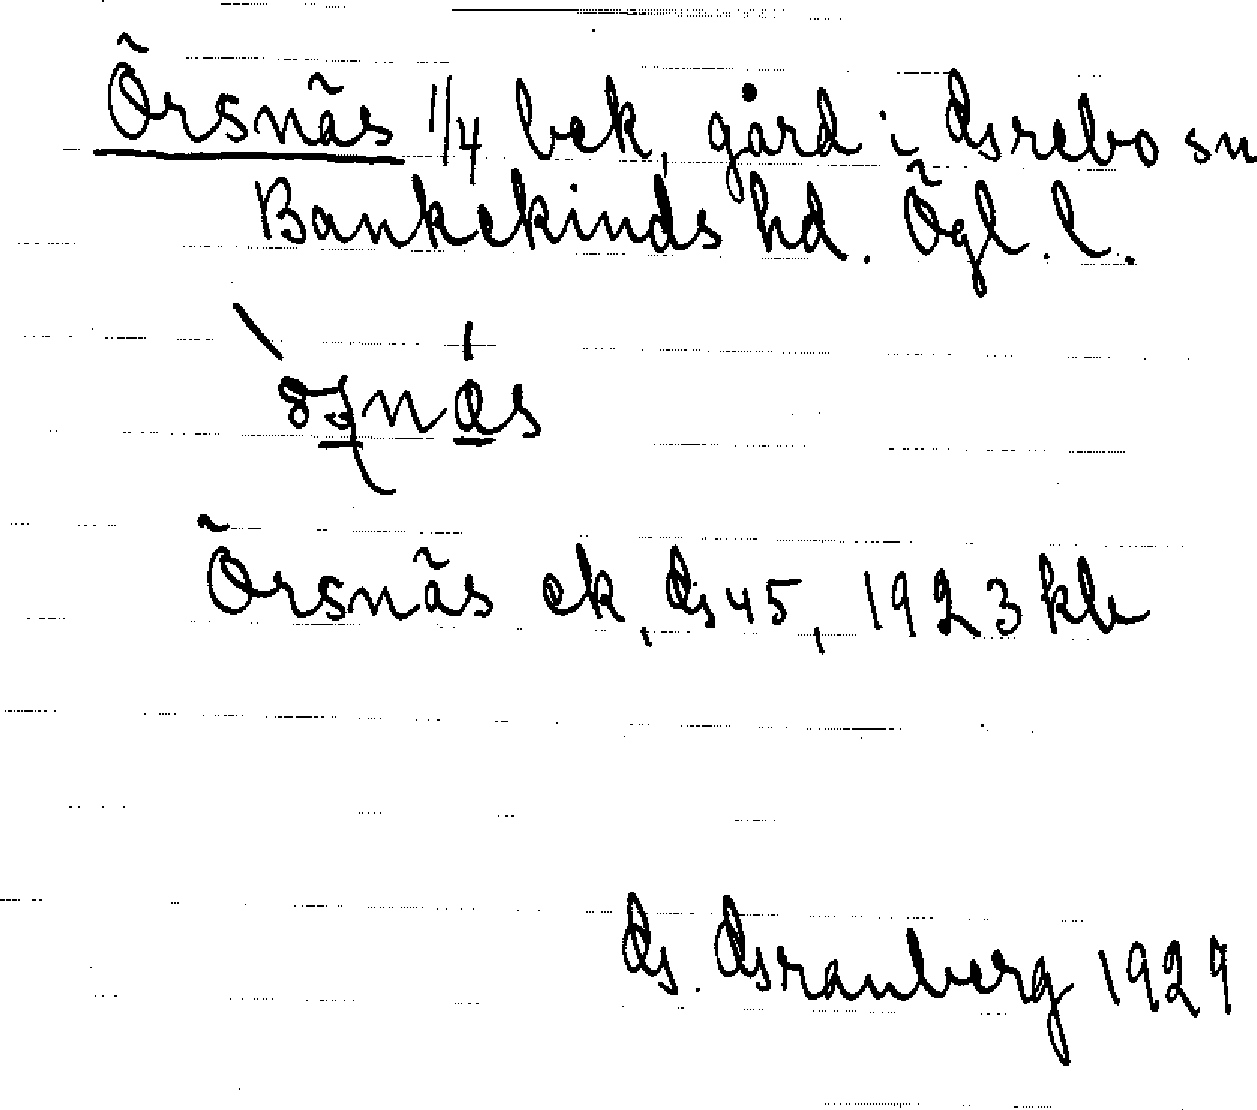 Örsnäs 1/4 bek, gård i Grebo sn
Bankekinds hd. Ögl. l.
Örsnäs ek, G 45, 1923 kb
G. Granberg 1929